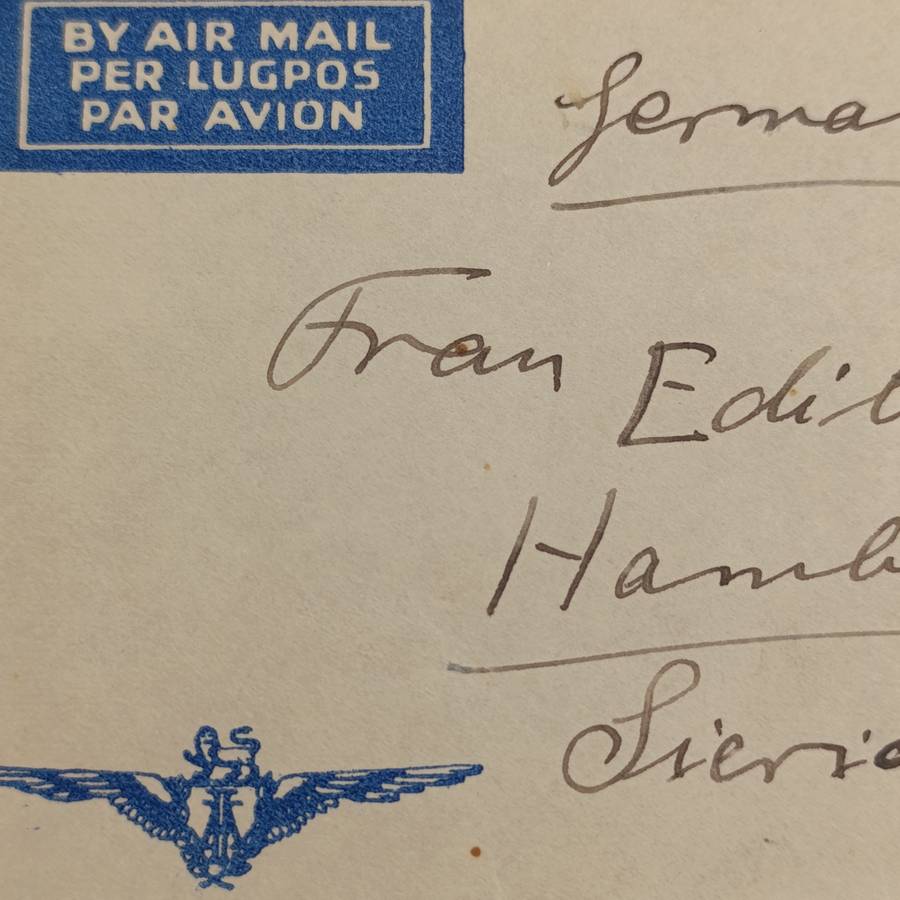 BY AIR MAIL
PER LUGPOS
PAR AVION
Germa
Frau Edit
Hamb
Sieric